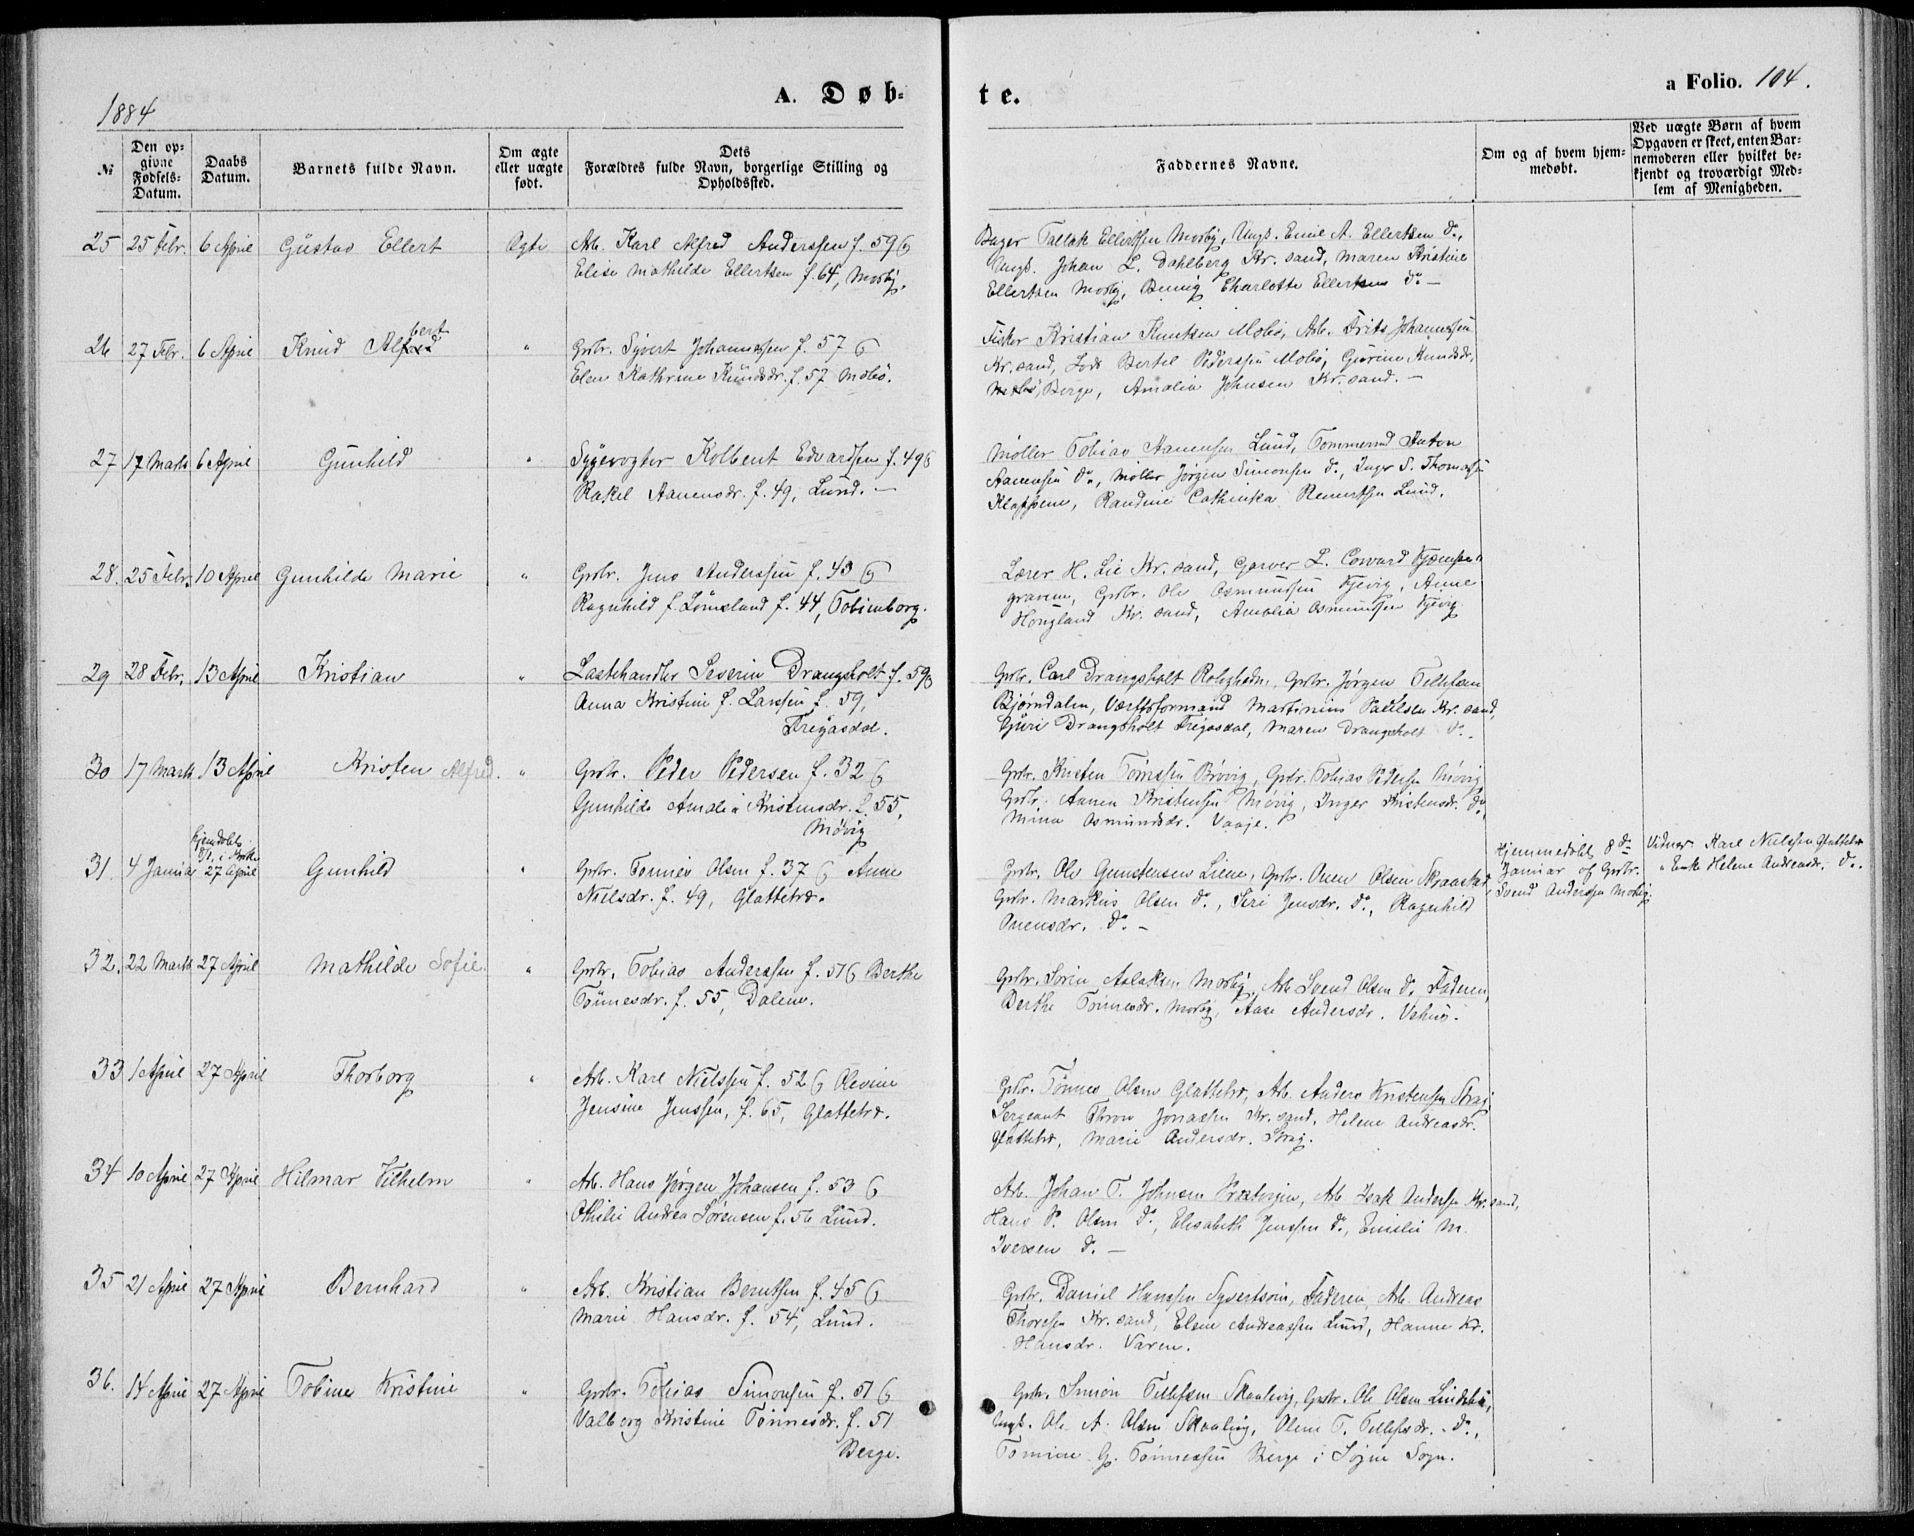 1884
A. Døb-
te.
a Folio. 104.
№
Den op-
givne
Fødsels-
Datum.
Daabs
Datum.
Barnets fulde Navn.
Om ægte
eller uægte
født.
Dets
Forældres fulde Navn, borgerlige Stilling og
Opholdssted.
Faddernes Navne.
Om og af hvem hjem-
medøbt.
Ved uægte Børn af hvem
Opgaven er skeet, enten Bar-
nemoderen eller hvilket be-
kjendt og troværdigt Med-
lem af Menigheden.
25 25 Febr. 6 April Gustav Ellert Ægte Arb. Karl Alfred Anderssen f. 59 &
Elise Mathilde Ellertsen f. 64, Mosby.
Bager Tallak Ellertsen Mosby, Ungk. Emil A. Ellertsen do.,
Ungk. Johan L. Dahlberg Kr.sand, Maren Kristine
Ellertsen Mosby, Charlotte Ellertsen do. —
26 27 Febr. 6 April Knud Alfred bert " Grbr. Syvert Johannessen f. 57 &
Elen Kathrine Knudsdr. f. 57 Mebø.
Fisker Kristian Knutsen Mebø, Arb. Frits Johannessen
Kr.sand, Lods Bertel Pederssen Mebø, Gurine Knudsdr.
Mebø, Berge, Amalia Johnsen Kr.sand. —
27 17 Marts 6 April Gunhild " Sygevogter Kolbent Edvardsen f. 49 &
Rakel Aanensdr. f. 49, Lund. —
Møller Tobias Aanensen Lund, Tømmermd Anton
Aanensen do., Møller Jørgen Simonsen do., Inger S. Thomassen
Kløppene, Randine Cathinka Reinertsen Lund.
28. 25 Febr. 10 April Gunhilde Marie " Grbr. Jens Anderssen f. 43 &
Ragnhild f. Lømsland f. 44, Tobienborg.
Lærer H. Lie Kr.sand, Garver L. Corvard
graven, Grbr. Ole Osmundsen Kjevig, Anne
Hougland Kr.sand, Amalia Osmundsen Kjevig.
29 28 Febr. 13 April Kristian " Lastehandler Severin Drangsholt f. 59 &
Anna Kristine f. Larssen f. 59,
Frigasdal.
Grbr. Carl Drangsholt Rolighden, Grbr. Jørgen Tellefsen
Bjørndalen, Værftsformand Martinius Paulsen Kr.sand,
Guri Drangsholt Frigasdal, Maren Drangsholt do.
30 17 Marts 13 April Kristen Alfred. " Grbr. Peder Pedersen f. 32 &
Gunhilde Amalia Kristensdr. f. 55,
Møvig
Grbr. Kristen Tønnssen Brøvig, Grbr. Tobias Pedersen Møvig
Grbr. Aanen Kristensen Møvig, Inger Kristensdr. do,
Mina Osmundsdr. Vaaje.
hjemdøbt
8/1, i Kirke
31. 4 Januar 27 April Gunhild " Grbr. Tønnes Olsen f. 37 & Anne
Nielsdr. f. 49, Glattetre.
Grbr. Ole Gunstensen Liene, Grbr. Onen Olsen Skraastad,
Grbr. Markus Olsen do., Siri Jensdr. do., Ragnhild
Onensdr. do. —
Hjemmedøbt 8de
Januar af Grbr.
Svend Anderssen Mosby
Vidner: Karl Nielssen Glattetre
" Enke Helene Andreasdr. do.
32. 22 Marts 27 April Mathilde Sofie. " Grbr. Tobias Anderssen f. 51 & Berthe
Tønnesdr. f. 55, Dalene.
Grbr. Søren Aslaksen Mosby, Arb. Svend Olsen do. Faderen,
Berthe Tønnesdr. Mosby, Aase Andersdr.
33 1 April 27 April Thorborg " Arb. Karl Nielssen f. 52 & Olevine
Jensine Jenssen, f. 65, Glattetre.
Grbr. Tønnes Olsen Glattetre, Arb. Anders Kristensen Strai
Sergeant Thron Jonassen Kr.sand, Helene Andreasdr.
Glattetre, Marie Andersdr. Strai.
34 10 April 27 April Hilmar Vilhelm " Arb. Hans Jørgen Johansen f. 53 &
Othilie Andrea Sørensen f. 56 Lund.
Arb. Johan T. Johnsen Præstvejen, Arb. Isak Andersen Kr.sand,
Hans P. Olsen do., Elisabeth Jenssen do., Emilie M.
Iversen do. —
35 21 April 27 April Bernhard " Arb. Kristian Berntsen f. 45 &
Marie Hansdr. f. 54, Lund.
Grbr. Daniel Hanssen Syvertsøin, Faderen, Arb. Andreas
Thoresen Kr.sand, Elene Andreassen Lund, Hanne Kr.
Hansdr. Varen.
36. 14 April 27 April Tobine Kristine " Grbr. Tobias Simonsen f. 51 &
Valborg Kristine Tønnesdr. f. 51
Berge.
Grbr. Simon Tellefsen Skaalevig, Grbr. Ole Olsen Lindebø,
Ungk. Ole A. Olsen Skaalevig, Olene T. Tellefsdr. do.,
Tomine G. Tønnessen Berge i Søgne Sogn.